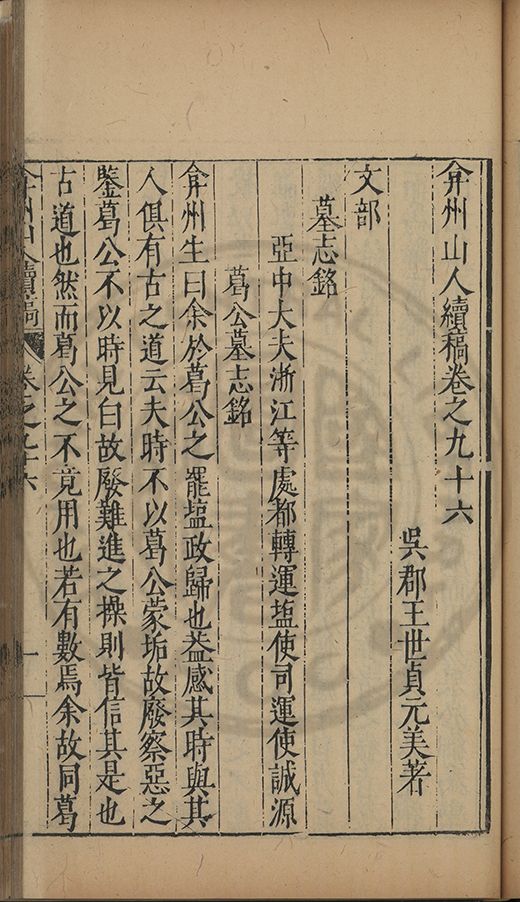 弇州山人續稿卷之九十六
吳郡王世貞元美著
文部
墓志銘
亞中大夫浙江等處都轉運塩使司運使誠源
葛公墓志銘
弇州生曰余於葛公之罷塩政歸也益感其時與其
人俱有古之道云夫時不以葛公蒙垢故廢察惡之
鑒葛公不以時見白故廢難進之操則皆信其是也
古道也然而葛公之不竟用也若有數焉余故同葛
弇州山人續稿
卷之九十六
一